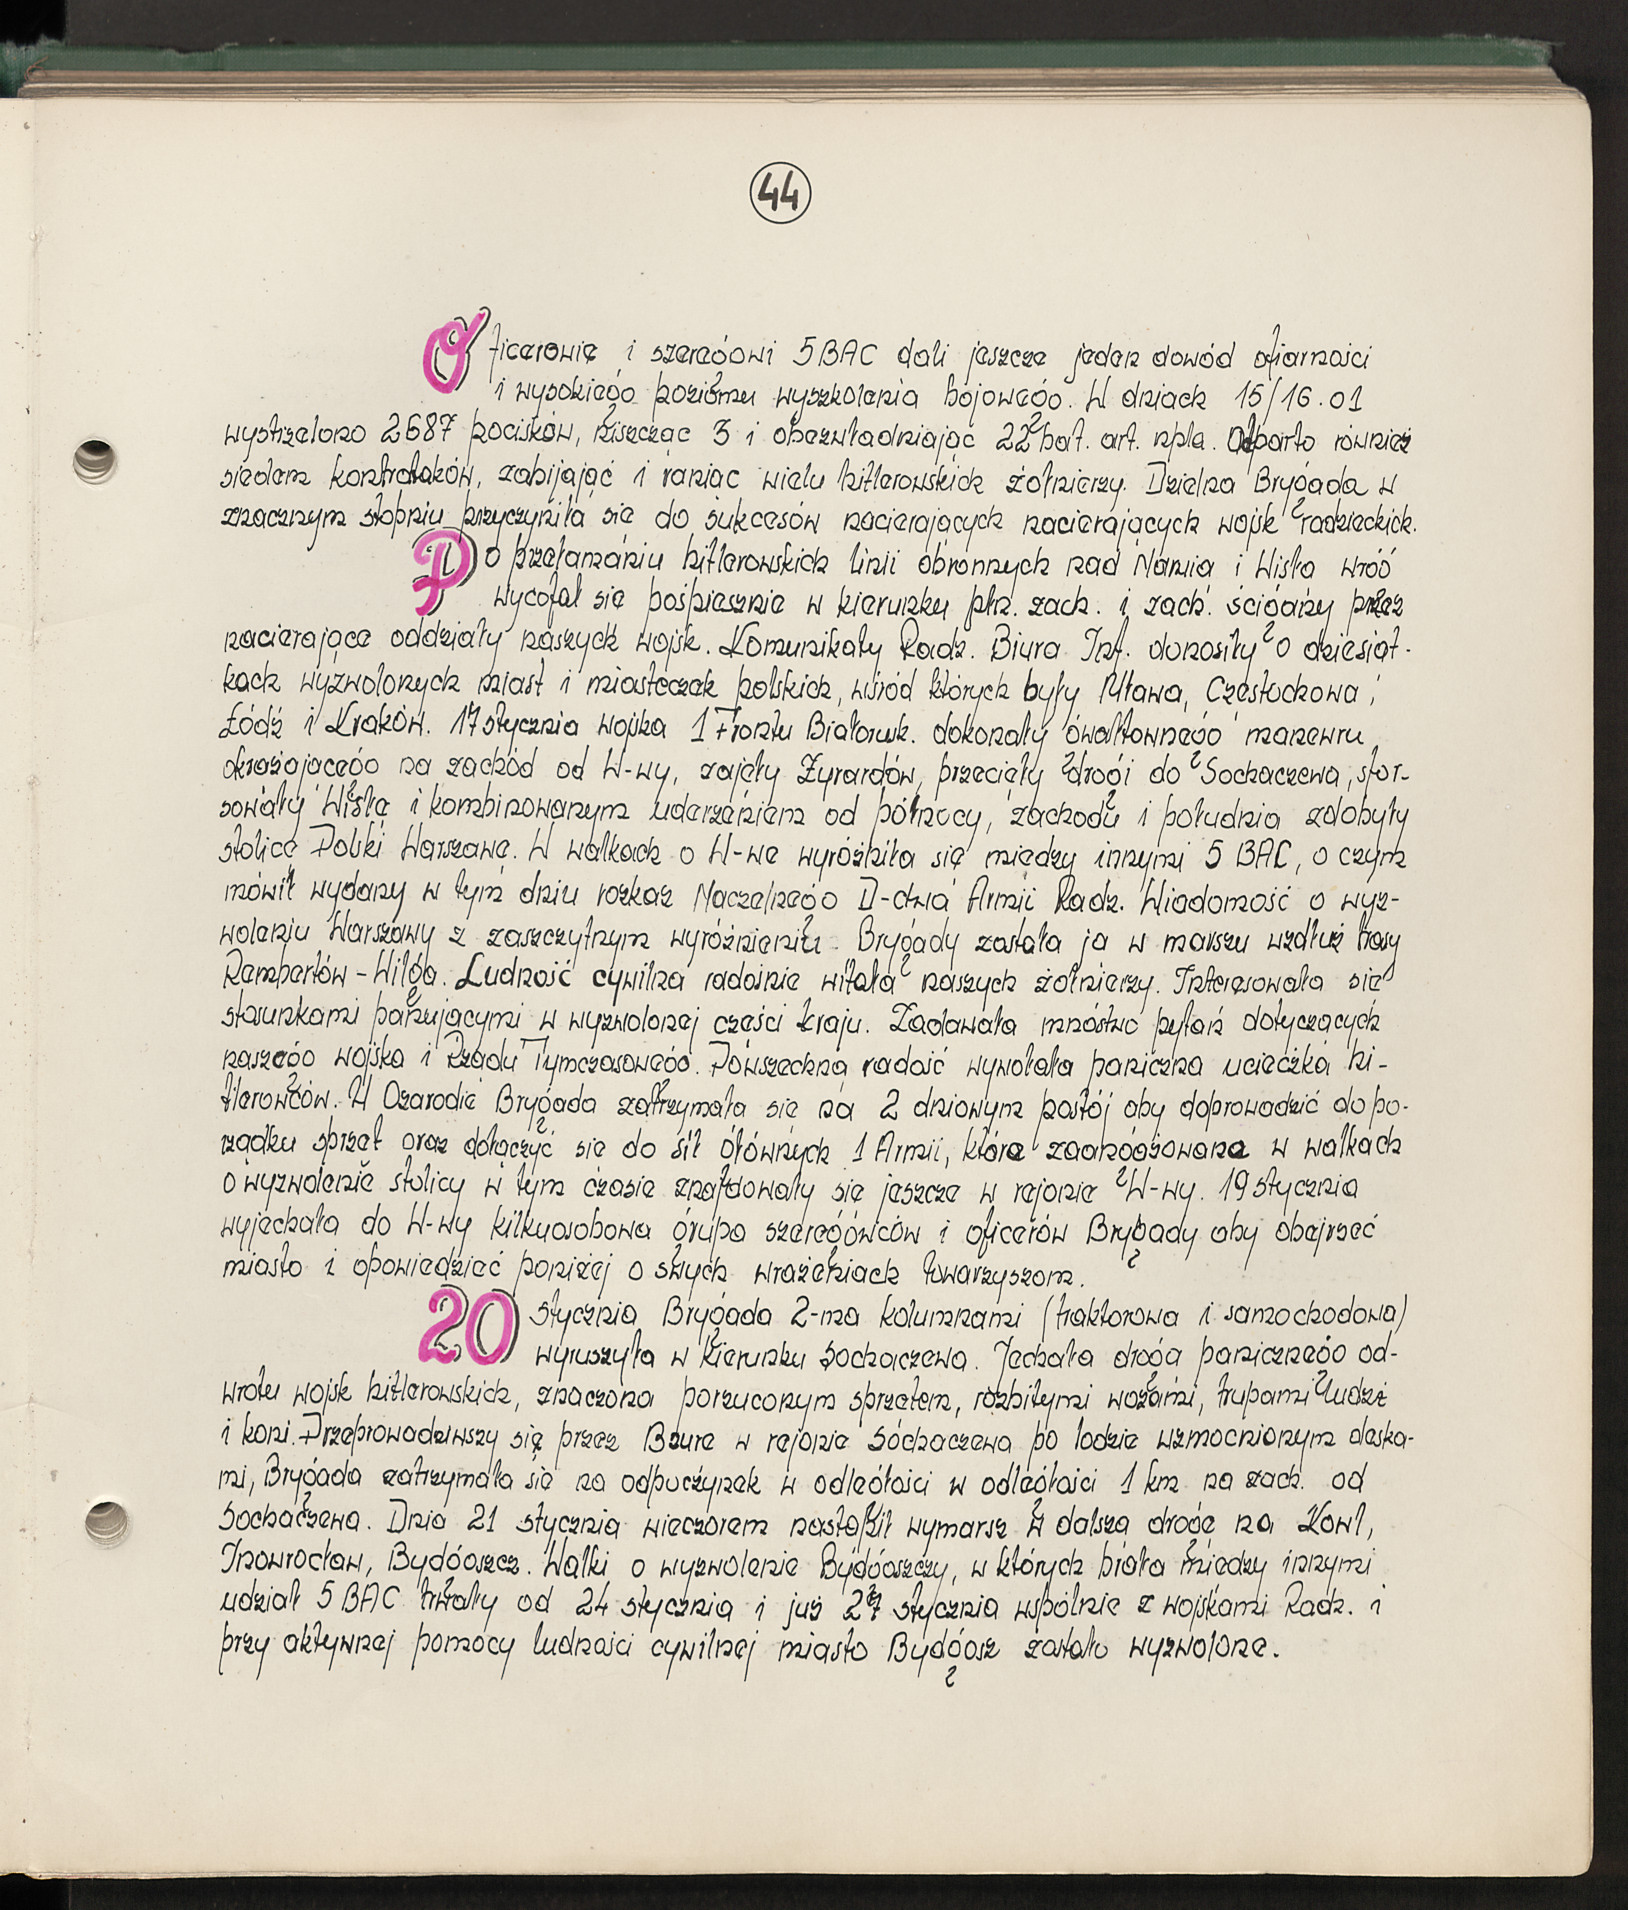 44
Oficerowie i szeregowi 5 BAC dali jeszcze jeden dowód ofiarności
i wysokiego poziomu wyszkolenia bojowego. W dniach 15/16.01
wystrzelono 2687 pocisków, niszcząc 3 i obezwładniając 22 bat. art. npla. Odparto również
siedem kontrataków, zabijając i raniąc wielu hitlerowskich żołnierzy. Dzielna Brygada w
znacznym stopniu przyczyniła się do sukcesów nacierających nacierających wojsk radzieckich.
Po przełamaniu hitlerowskich linii obronnych nad Narwią i Wisłą wróg
wycofał się pośpiesznie w kierunku płn. zach. i zach. ścigany przez
nacierające oddziały naszych wojsk. Komunikaty Radz. Biura Inf. donosiły o dziesiąt-
kach wyzwolonych miast i miasteczek polskich, wśród których były Mława, Częstochowa,
Łódź i Kraków. 17 stycznia wojska 1 Frontu Białorusk. dokonały gwałtownego manewru
okrążającego na zachód od W-wy, zajęły Żyrardów, przecięły drogi do Sochaczewa, sfor-
sowały Wisłę i kombinowanym uderzeniem od północy, zachodu i południa zdobyły
stolicę Polski Warszawę. W walkach o W-wę wyróżniła się między innymi 5 BAC, o czym
mówił wydany w tym dniu rozkaz Naczelnego D-dwa Armii Radz. Wiadomość o wyz-
woleniu Warszawy z zaszczytnym wyróżnieniu Brygady zastała ją w marszu wzdłuż trasy
Rembertów - Wilga. Ludność cywilna radośnie witała naszych żołnierzy. Interesowała się
stosunkami panującymi w wyzwolonej części kraju. Zadawała mnóstwo pytań dotyczących
naszego wojska i Rządu Tymczasowego. Powszechną radość wywołała paniczna ucieczka hi-
tlerowców. W Ożarodie Brygada zatrzymała się na 2 dniowym postój aby doprowadzić do po-
rządku sprzęt oraz dołączyć się do sił głównych 1 Armii, które zaangażowane w walkach
o wyzwolenie stolicy w tym czasie znajdowały się jeszcze w rejonie W-wy. 19 stycznia
wyjechała do W-wy kilkuosobowa grupa szeregowców i oficerów Brygady aby obejrzeć
miasto i opowiedzieć poniżej o swych wrażeniach towarzyszom.
20 stycznia Brygada 2-ma kolumnami (traktorowa i samochodowa)
wyruszyła w kierunku Sochaczewa. Jechała drogą panicznego od-
wrotu wojsk hitlerowskich, znaczoną porzuconym sprzętem, rozbitymi wozami, trupami ludzi
i koni. Przeprowadziwszy się przez Bzurę w rejonie Sochaczewa po lodzie wzmocnionym deska-
mi, Brygada zatrzymała się na odpoczynek w odległości w odległości 1 km na zach. od
Sochaczewa. Dnia 21 stycznia wieczorem nastąpił wymarsz w dalszą drogę na Kowl,
Inowrocław, Bydgoszcz. Walki o wyzwolenie Bydgoszczy, w których brała między innymi
udział 5 BAC trwały od 24 stycznia i już 27 stycznia wspólnie z wojskami Radz. i
przy aktywnej pomocy ludności cywilnej miasto Bydgosz zostało wyzwolone.